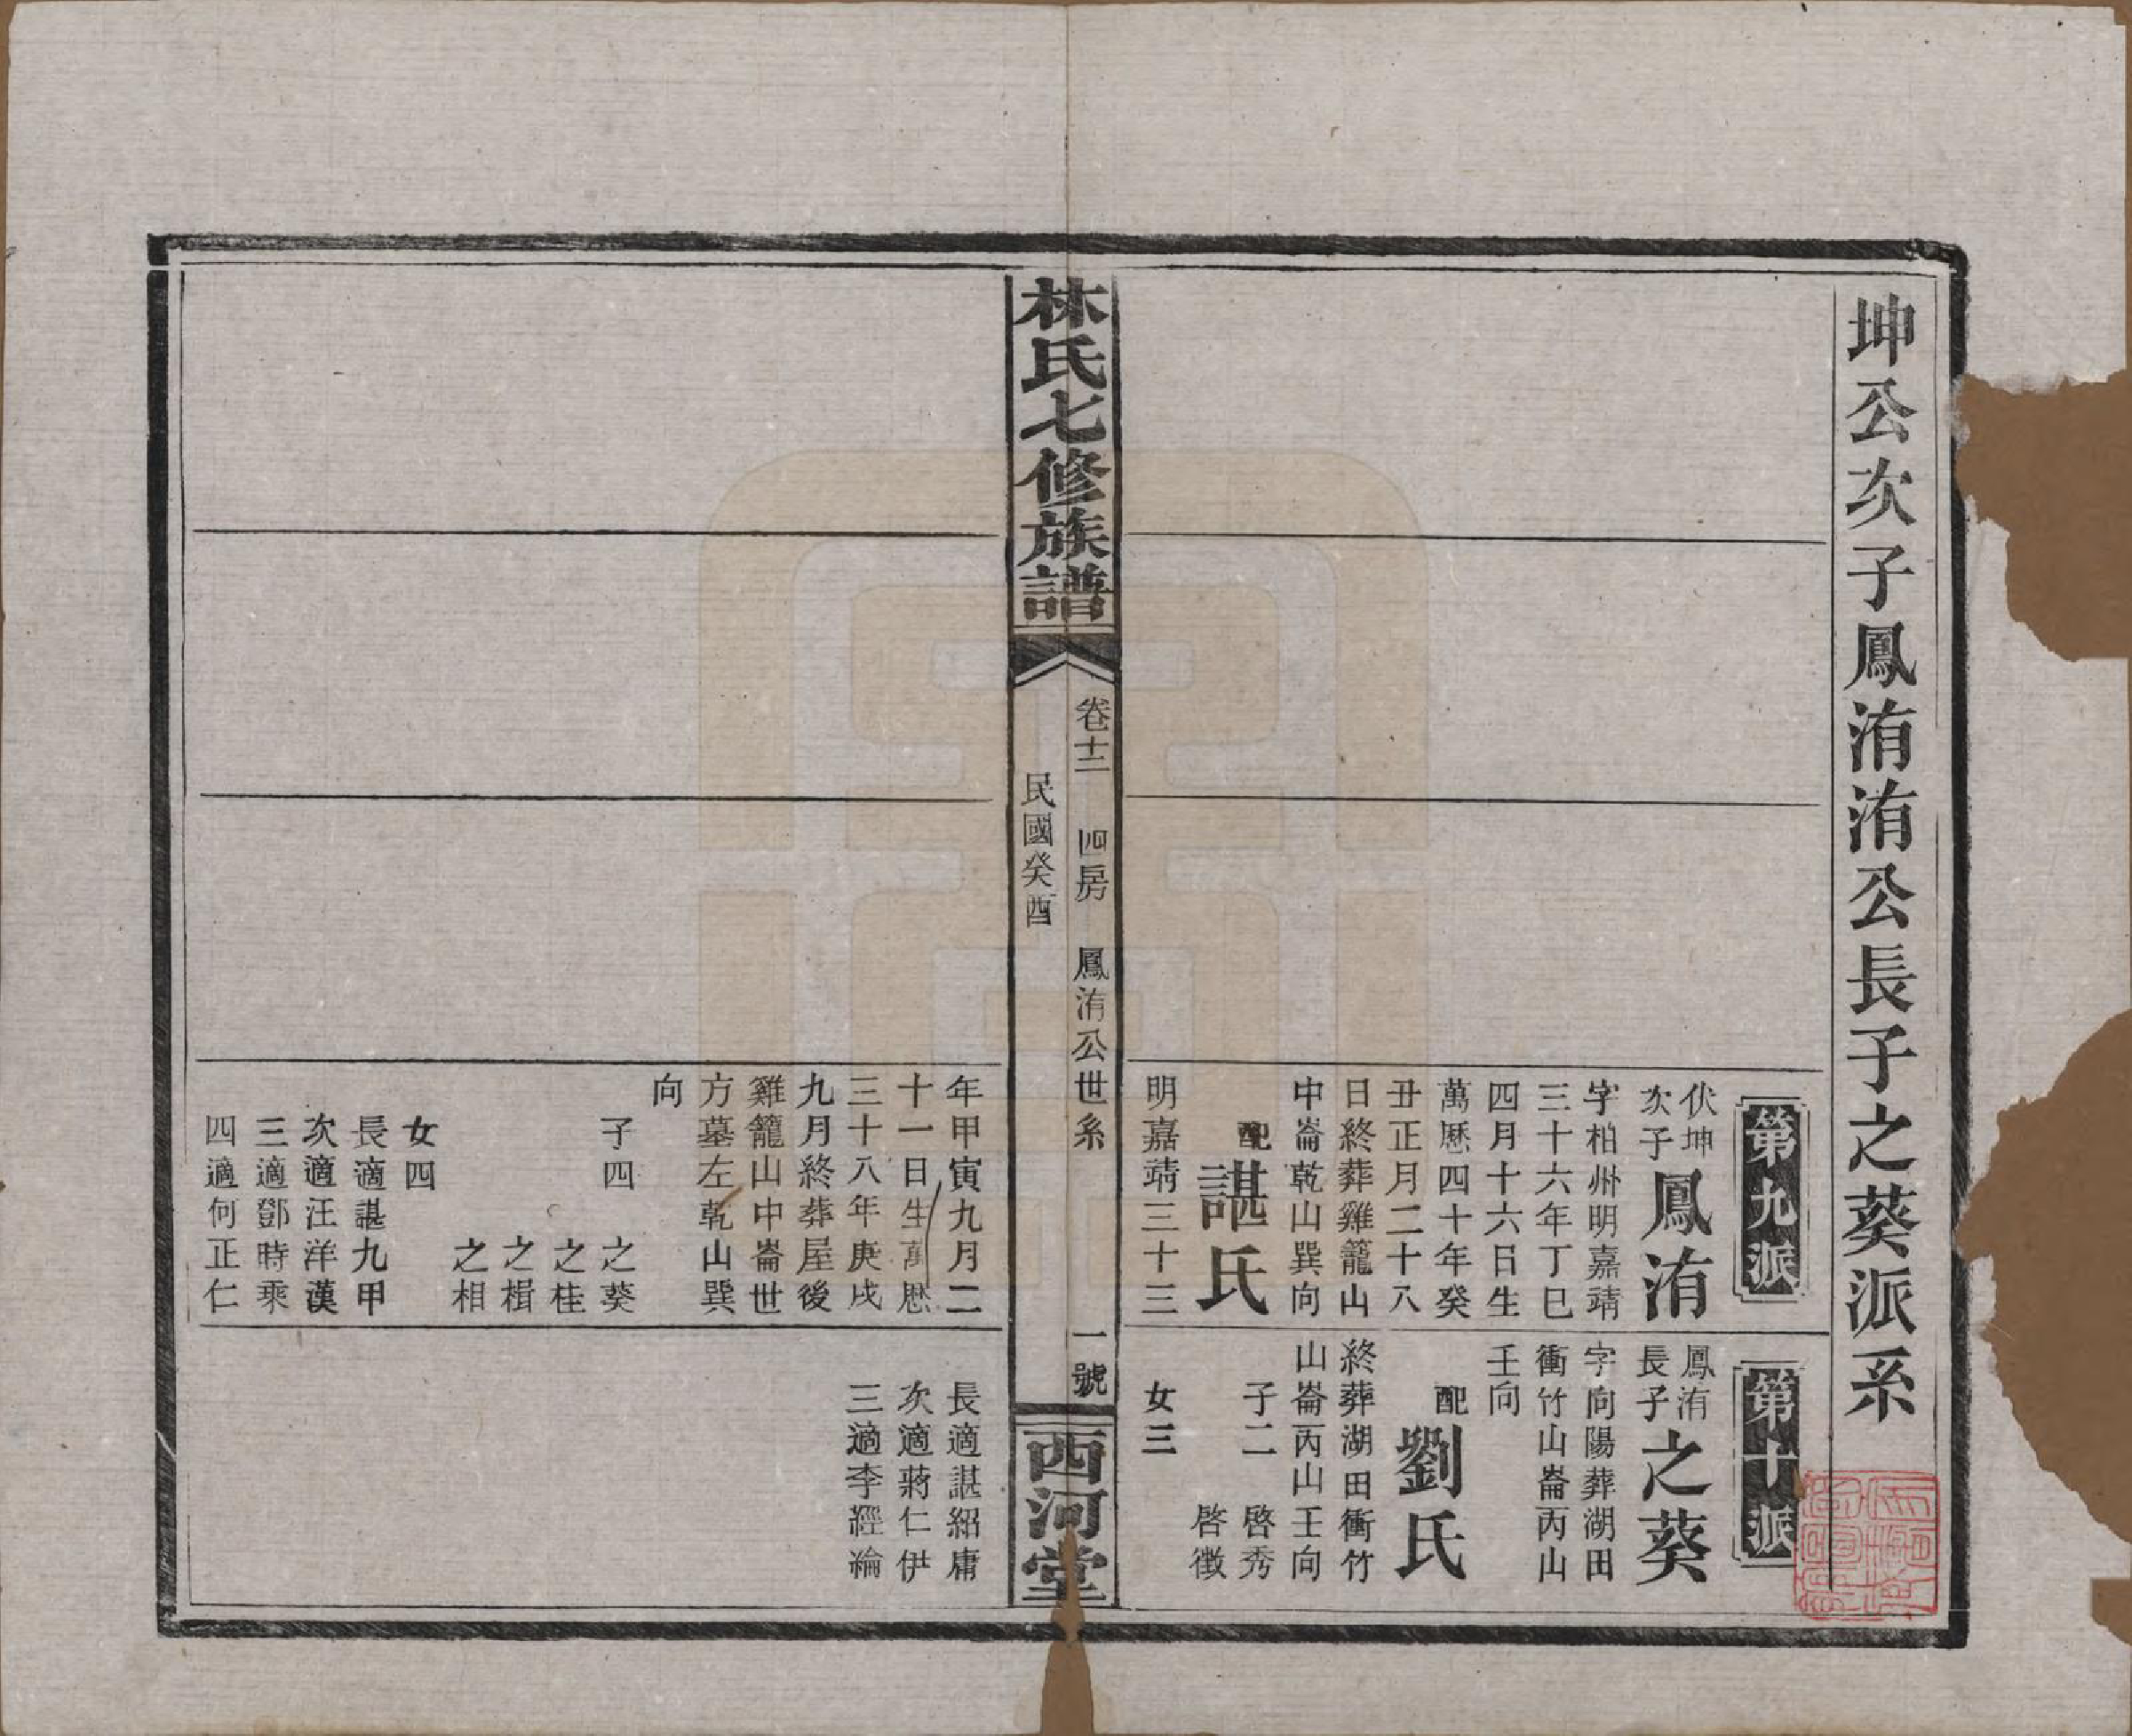 坤公次子鳳洧洧公長子之葵派系
第九派
伏坤
次子
鳳洧
字柏州明嘉靖
三十六年丁巳
四月十六日生
萬厯四十年癸
丑正月二十八
日終葬雞籠山
中崙乾山巽向
配諶氏
明嘉靖三十三
第十派
鳳洧
長子
之葵
字向陽葬湖田
衝竹山崙丙山
壬向
配劉氏
終葬湖田衝竹
山崙丙山壬向
子二 啓秀
啓徴
女三
林氏七修族譜
卷十二 四房 鳳洧公世系 一號
民國癸酉
西河堂
年甲寅九月二
十一日生萬厯
三十八年庚戌
九月終葬屋後
雞籠山中崙世
方墓左乾山巽
向
子四 之葵
之桂
之楫
之相
女四
長適諶九甲
次適汪洋漢
三適鄧時乘
四適何正仁
長適諶紹庸
次適蔣仁伊
三適李經綸